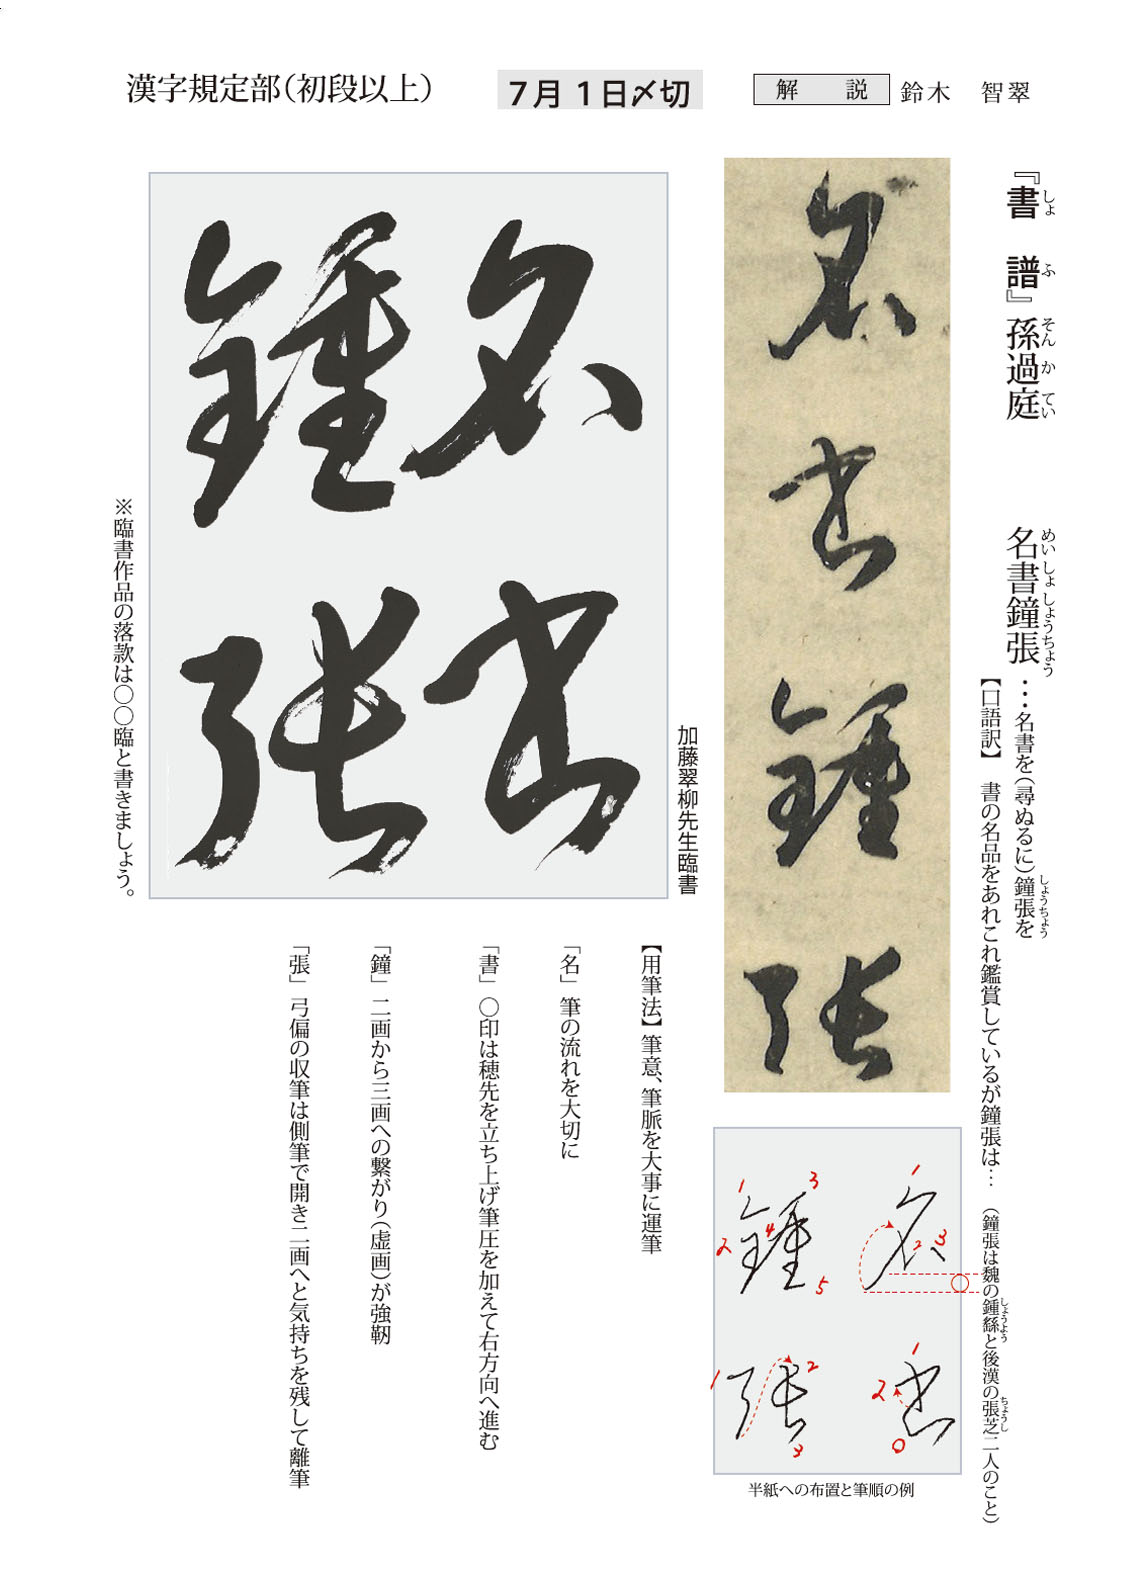 漢字規定部（初段以上）
７月１日〆切
解　説　鈴木　智翠
『書　譜』孫過庭　名書鐘張…名書を（尋ぬるに）鐘張を
しょ　ふ　そん　か　てい　めい　しょ　しょうちょう　しょうちょう
【口語訳】　書の名品をあれこれ鑑賞しているが鐘張は…　（鐘張は魏の鍾繇と後漢の張芝二人のこと）
しょうよう　ちょうし
名書鍾張
加藤翠柳先生臨書
名書
鍾張
※臨書作品の落款は〇〇臨と書きましょう。
1 2 3
名
1 2
書
1 2 3 4 5
鍾
1 2 3
張
半紙への布置と筆順の例
【用筆法】筆意、筆脈を大事に運筆
「名」筆の流れを大切に
「書」〇印は穂先を立ち上げ筆圧を加えて右方向へ進む
「鐘」二画から三画への繋がり（虚画）が強靭
「張」弓偏の収筆は側筆で開き二画へと気持ちを残して離筆